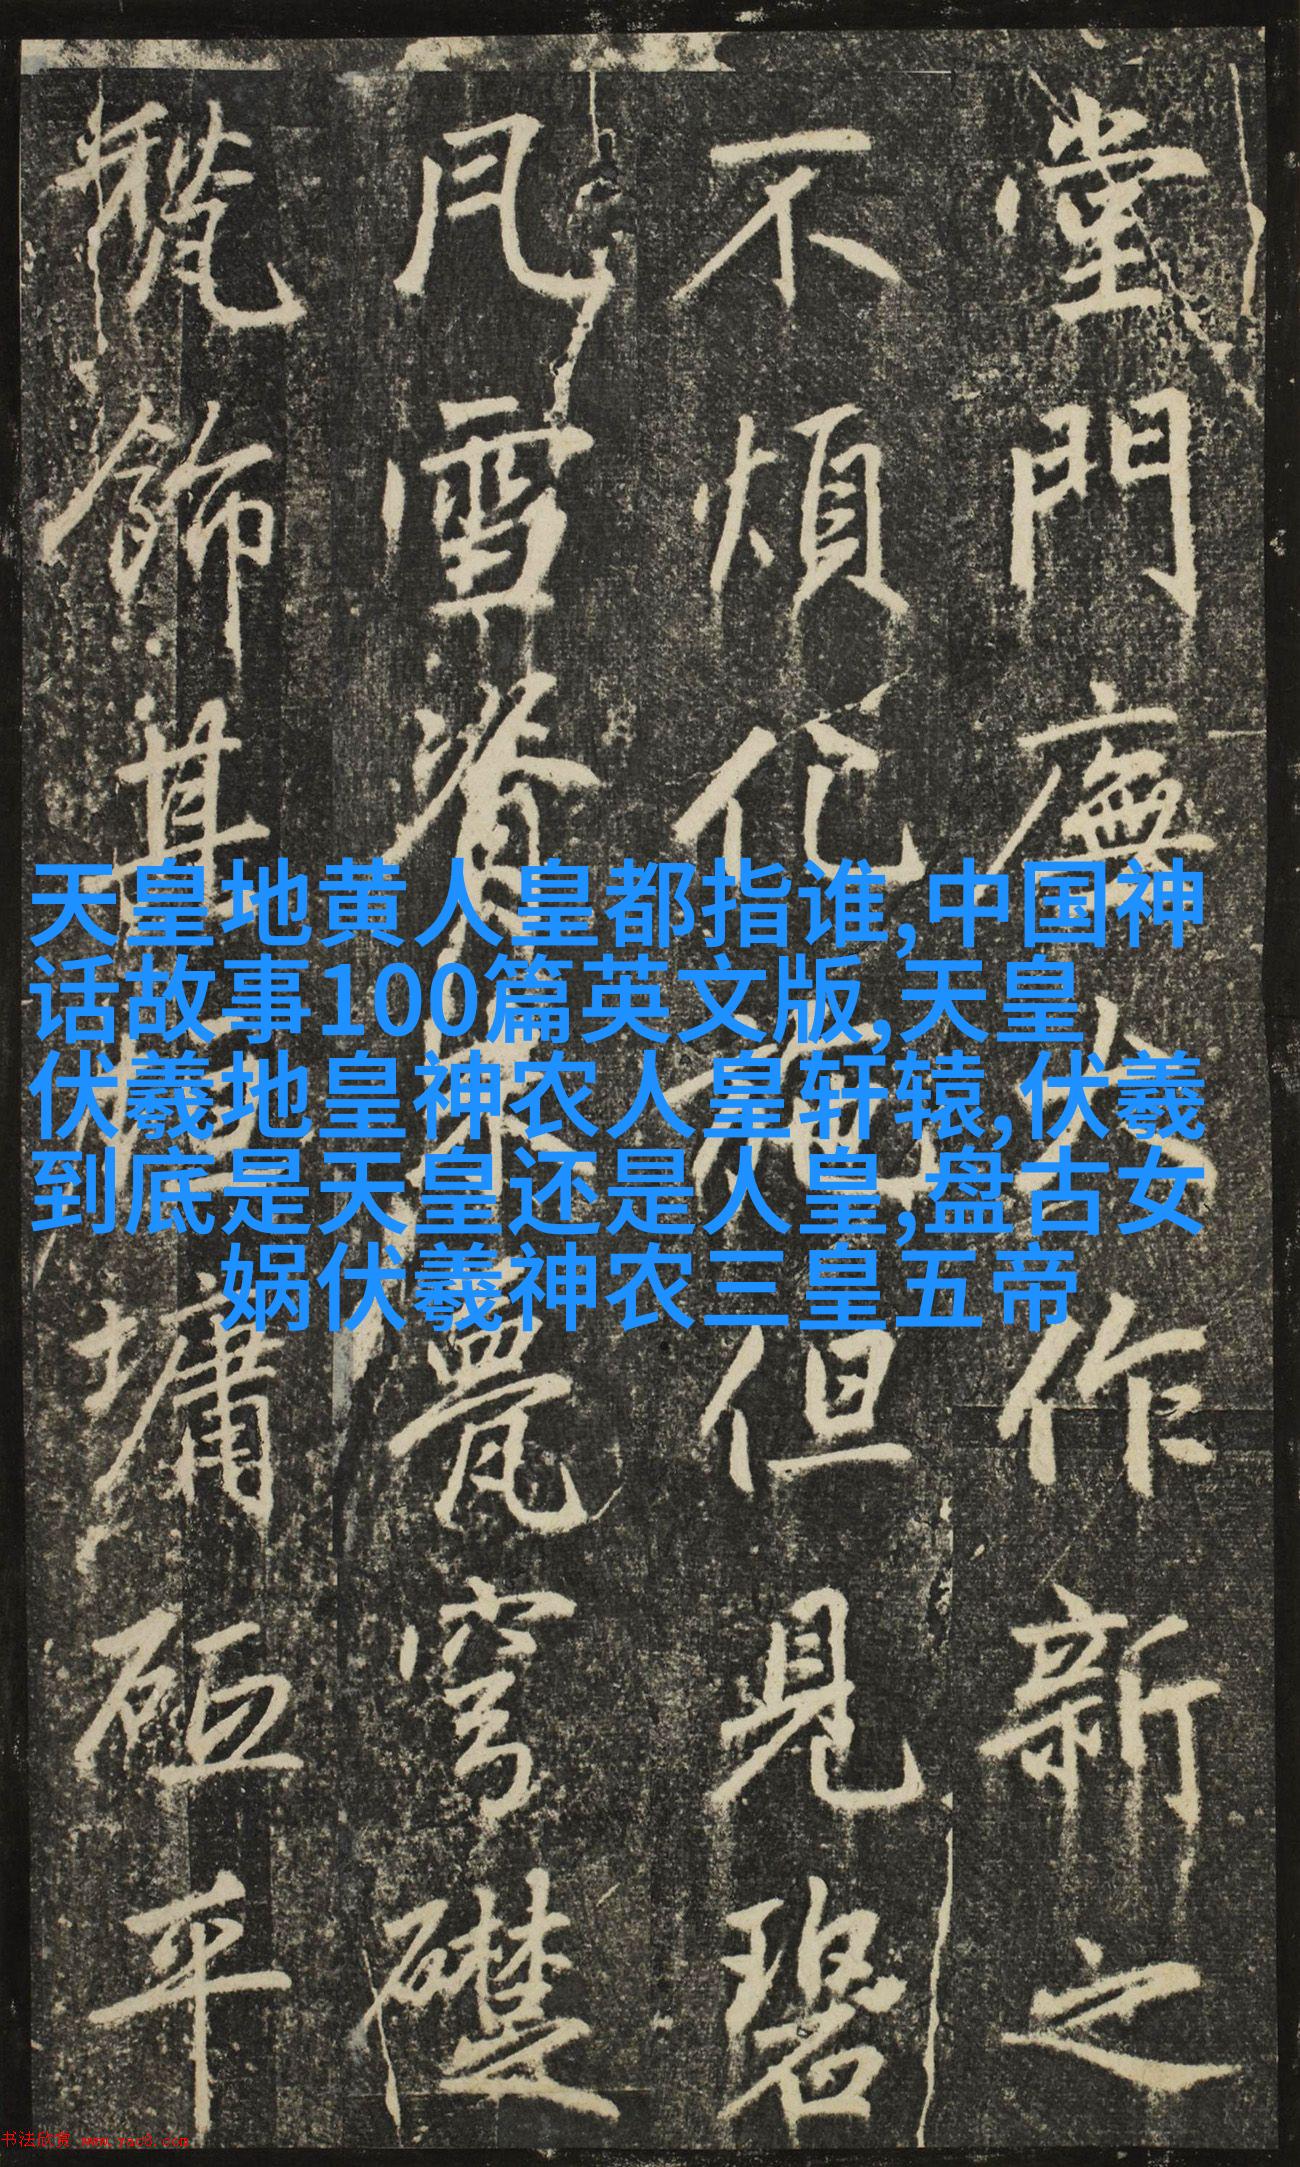 天皇地黄人皇都指谁,中国神
话故事100篇英文版,天皇
伏羲地皇神农人皇轩辕,伏羲
到底是天皇还是人皇,盘古女
娲伏羲神农三皇五帝
堂門廡作新之
不煩化施但見碧
雪脊甍穹礎
飾墉砠平
书法欣赏 www.yac8.com